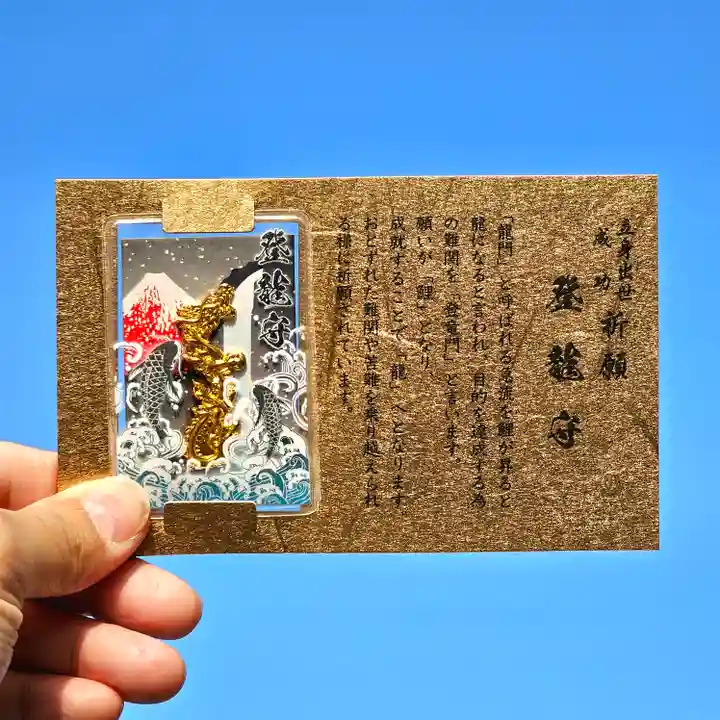 立身出世
成功
祈願
登龍守
「龍門」と呼ばれる急流を鯉が昇ると
龍になると言われ、目的を達成する為
の難関を、「登竜門」と言います。
願いが「鯉」となり、
成就することで、「龍」へとなります。
おとずれた難関や苦難を乗り越えられ
る様に祈願されています。
登龍守